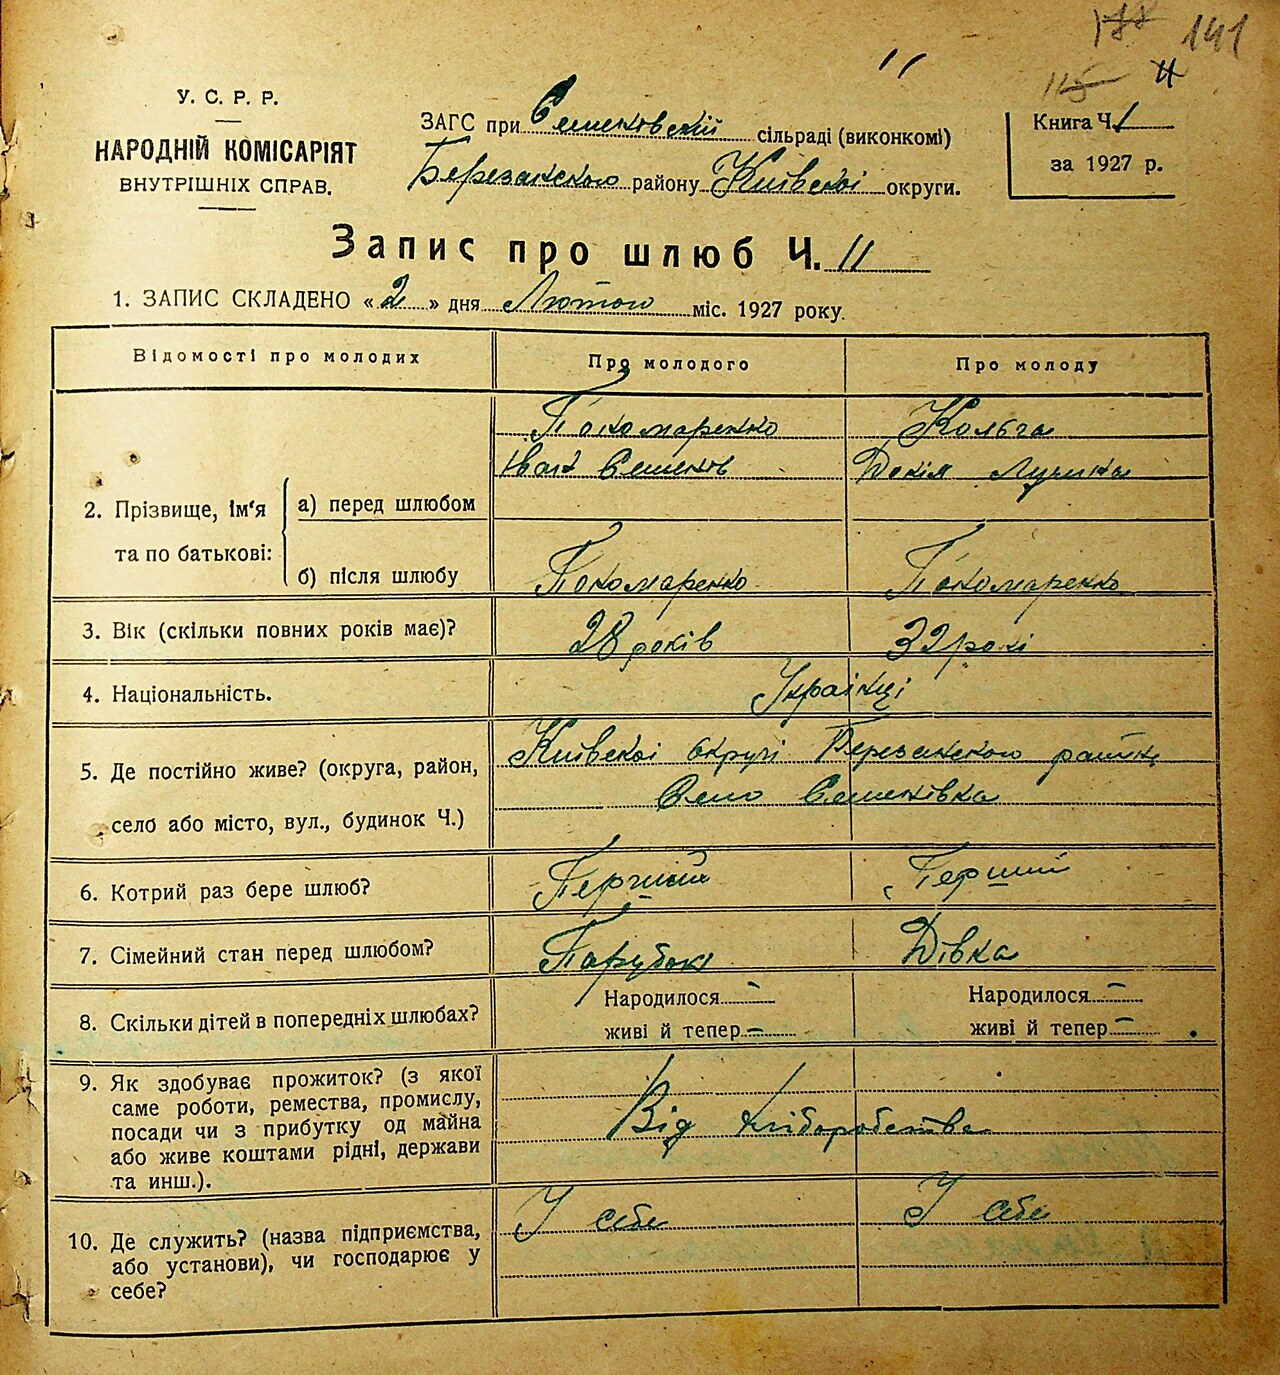 178 141
11
115 11
У. С. Р. Р.
НАРОДНІЙ КОМІСАРІЯТ
ВНУТРІШНІХ СПРАВ.
ЗАГС при Семеновскій сільраді (виконкомі)
Березанського району Київскоі округи.
Книга Ч. 1
за 1927 р.
Запис про шлюб Ч. 11
1. ЗАПИС СКЛАДЕНО «2» дня Лютого міс. 1927 року.
Відомості про молодих Про молодого Про молоду
2. Прізвище, ім'я та по батькові:
а) перед шлюбом
Пономаренко Кольга
Іван Семенов Докія
б) після шлюбу Пономаренко Пономаренко
3. Вік (скільки повних років має)? 28 років 32 роки
4. Національність. Українці
5. Де постійно живе? (округа, район, село або місто, вул., будинок Ч.)
Київскоі округі Березанского району
Село Семенівка
6. Котрий раз бере шлюб? Перший Перший
7. Сімейний стан перед шлюбом? Парубок Дівка
8. Скільки дітей в попередніх шлюбах? Народилося – Народилося –
живі й тепер – живі й тепер –
9. Як здобуває прожиток? (з якої
саме роботи, ремества, промислу,
посади чи з прибутку од майна
або живе коштами рідні, держави
та инш.).
Від хліборобства
10. Де служить? (назва підприємства,
або установи), чи господарює у
себе?
У себе У себе